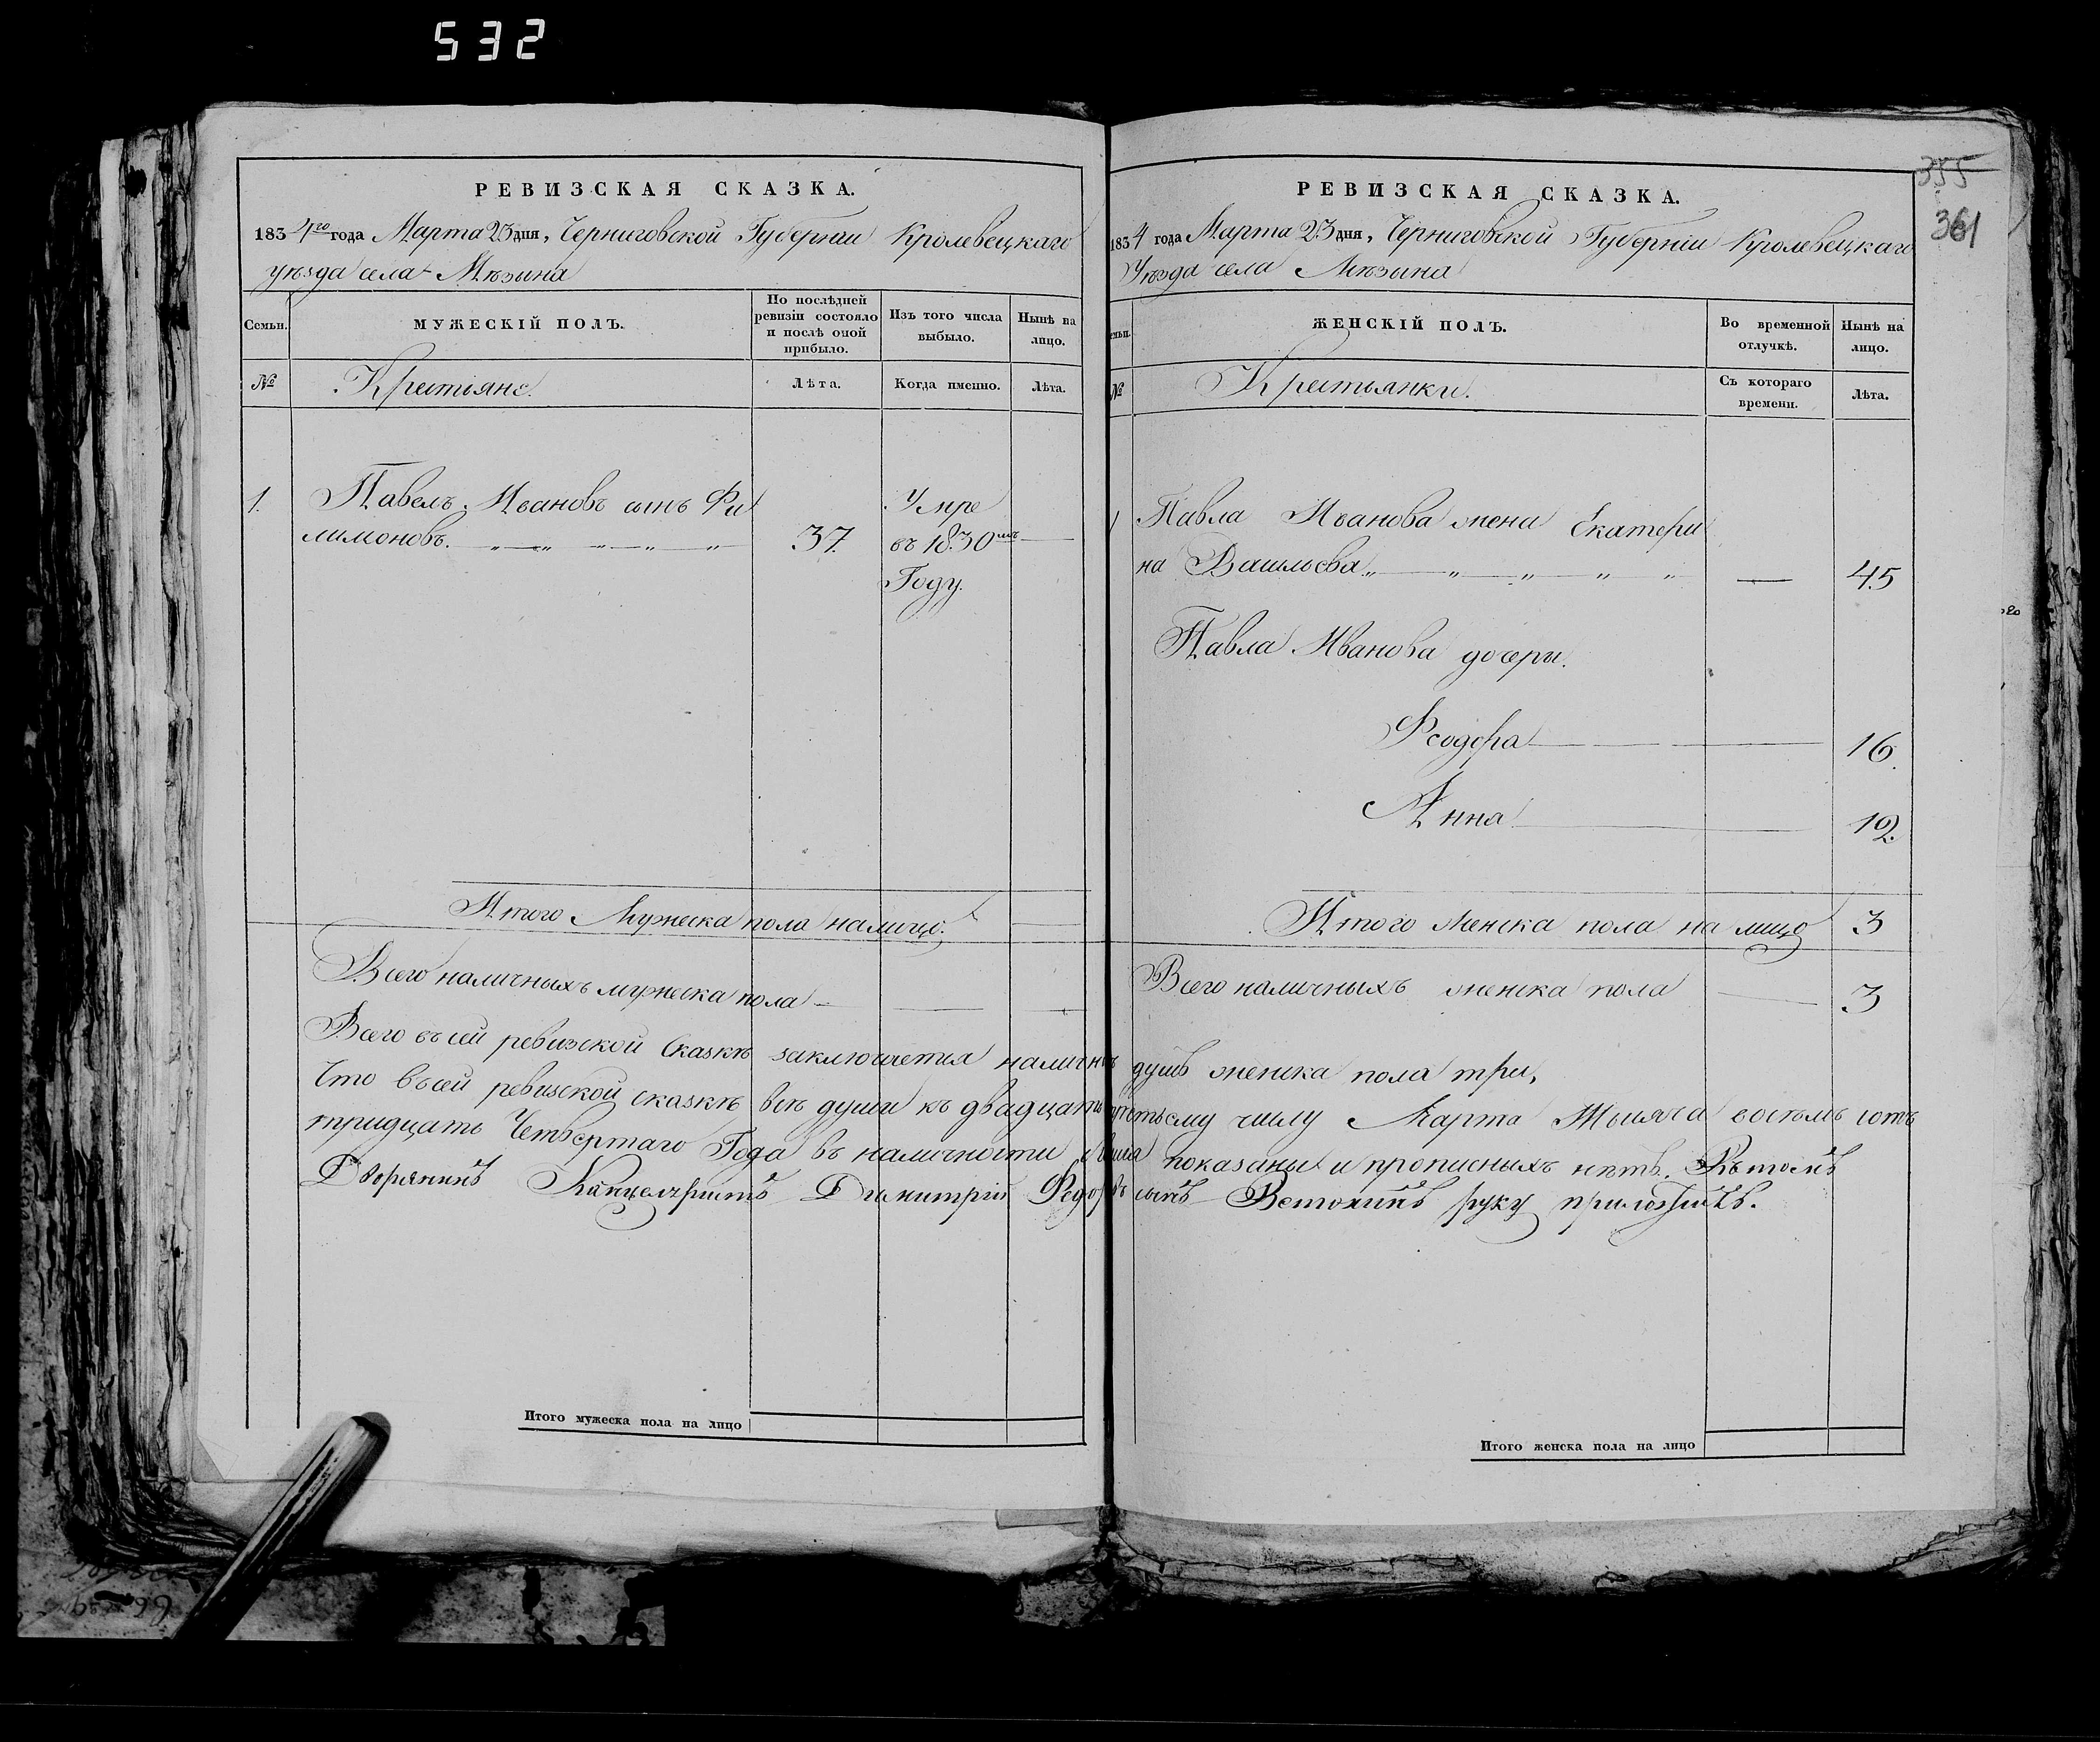 532
РЕВИЗСКАЯ СКАЗКА.
1834го года Марта 23 дня, Черниговской Губернiи Кролевецкаго
уѣзда села Мѣзына
Семьи.
МУЖЕСКIЙ ПОЛЪ.
По послѣдней
ревизiи состояло
и послѣ оной
прибыло.
Изъ того числа
выбыло.
Нынѣ на
лицо.
№
Крестiяне.
Лѣта.
Когда именно.
Лѣта.
1.
Павелъ Ивановъ сынъ Фи
лимоновъ.
37.
Умре
въ 1830мъ
Году.
Итого Мужеска пола налицо.
Всего наличныхъ мужеска пола
355
361
РЕВИЗСКАЯ СКАЗКА.
1834 года Марта 23 дня, Черниговской Губернiи Кролевецкаго
Уѣзда села Мѣзына
семьи.
ЖЕНСКIЙ ПОЛЪ.
Во временной
отлучкѣ.
Нынѣ на
лицо.
№
Крестьянки.
Съ котораго
времени.
Лѣта.
1
Павла Иванова жена Екатери
на Васильева
45
Павла Иванова дочери.
Феодора
16.
Анна
12.
Итого женска пола на лицо 3
Всего наличныхъ женска пола 3
Всего въ сей ревизской Сказкѣ заключается наличныхъ душъ женска пола три,
Что въ сей ревизской сказкѣ всѣ души къ двадцать третьему числу Марта Тысяча восемъ сотъ
тридцать Четвертаго Года въ наличности показаны и прописныхъ нѣтъ. Въ томъ
Дворянинъ Канцеляристъ Димитрiй Федоровъ сынъ руку приложилъ.
Итого мужеска пола на лицо
Итого женска пола на лицо